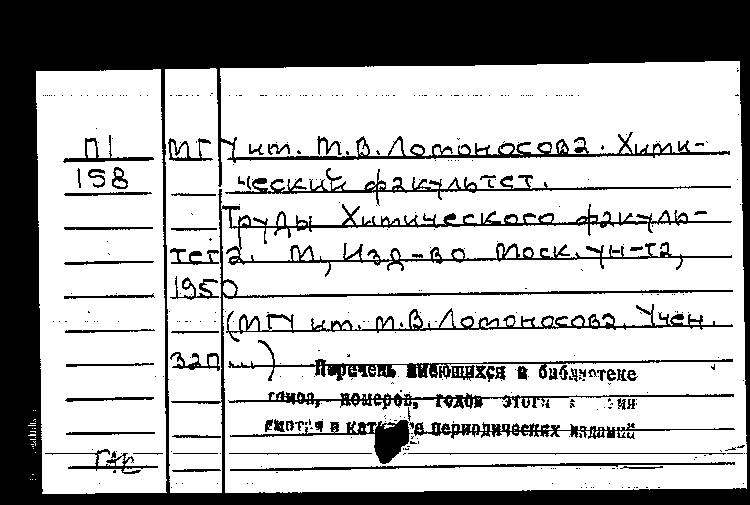 П1 МГУ им. М.В. Ломоносова. Хими-
158 ческий факультет.
Труды Химического факуль-
тета. М, Изд-во Моск. ун-та,
1950
(МГУ им. М.В. Ломоносова. Учен.
зап...) Перечень имеющихся в библиотеке
томов, номеров, годов этого
смотри в каталоге периодических изданий